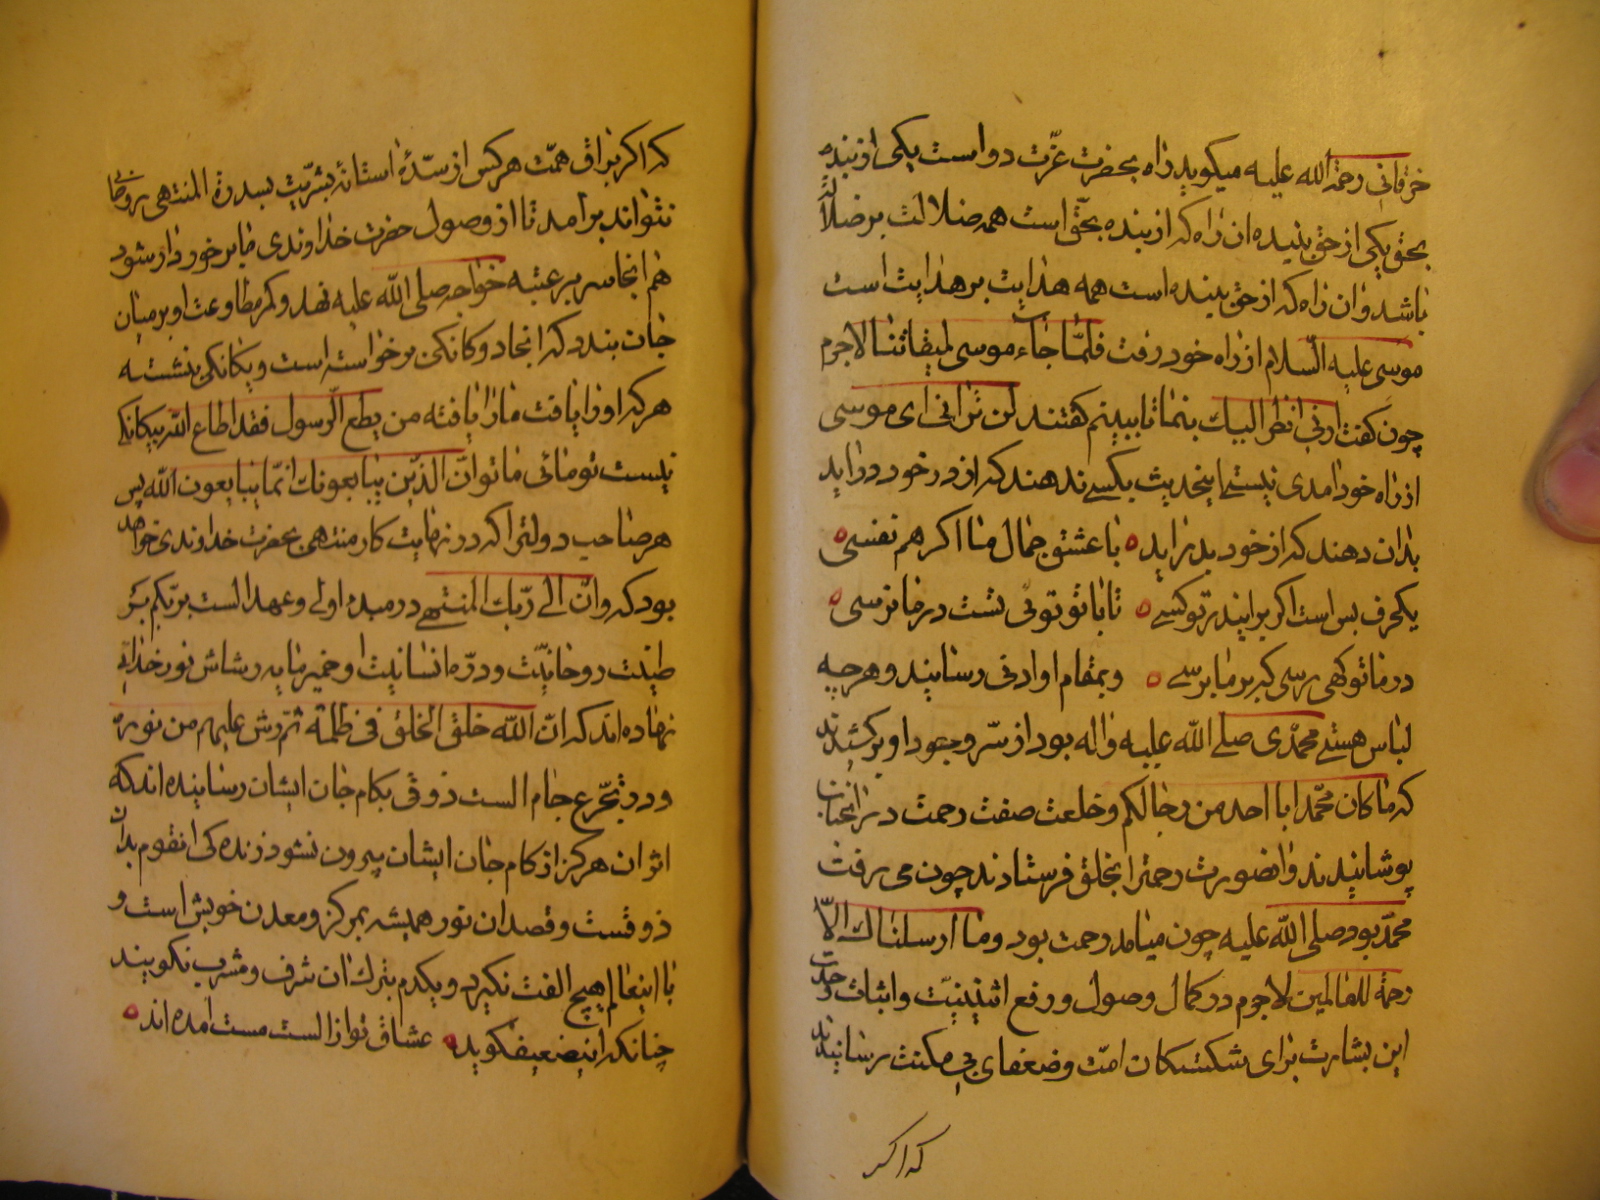 خرقانی رحمة الله علیه میکوید راه بحضرت عزّت دو است یکی از بنده
بحق یکی از حق ببنده ان راه که از بنده بحقّ است همه ضلالت بر ضلالت
باشد و ان راه که از حق ببنده است همه هدایت بر هدایت است
موسی علیه السّلام از راه خود رفت فلمّا جاء موسی لمیقاتنا لاجرم
چون کفت ارنی انظر الیك بنما تا ببینم کفتند لن ترانی ای موسی
از راه خود امدی نیستی اینحدیث بکسی ندهند که از در خود دراید
بدان دهند که از خود بدراید با عشق جمال ما اکر هم نفسی
یکحرف بس است اکر برایندر تو کسی تا با تو توئی تست در ما نرسی
در ما تو کهی رسی که بر ما برسی و بمقام او ادنی رسانیند و هرچه
لباس هستی محمّدی صلی الله علیه و اله بود از سّر وجود او برکشیدند
که ما کان محمّد ابا احد من رجالکم و خلعت صفت رحمت در انجناب
پوشانیدند و انصورت رحمترا بخلق فرستادند چون می رفت
محمّد بود صلی الله علیه چون میامد رحمت بود و ما ارسلناك الاّ
رحمة للعالمین لاجرم در کمال وصول و رفع اثنینیّت و اثبات وحدت
این بشارت برای شکستکان امّت و ضعفای بی مکنت رسانیدند
که اکر
که اکر براق همّت هر کس از سدّهٔ استانهٔ بشریّت بسدرة المنتهی روحانی
نتواند برامد تا از وصول حضرت خداوندی ما برخوردار شود
هم انجا سر بر عتبه خواجه صلی الله علیه نهد و کمر مطاوعت او بر میان
جان بندد که انجا دوکانکی برخواسته است و یکانکی بنشسته
هر که او را یافت ما را یافته من یطع الرسول فقد اطاع الله بیکانکی
نیست تو مائی ما تو انّ الذین یبایعونك انّما یبایعون الله پس
هر صاحب دولتی را که در نهایت کار منتهی بحضرت خداوندی خواهد
بود که و انّ الی ربّك المنتهی در مبده اولی و عهد الست بربّکم بر
طینت روحانیّت و ذرّه انسانیت او خمیر مایه رشاش نور خدائی
نهاده اند که ان الله خلق الخلق فی ظلمة ثم رش علیهم من نوره
و در تجّرع جام الست ذوقی بکام جان ایشان رسانیده اند که
اثر ان هرکز از کام جان ایشان بیرون نشود زنده کی انقوم بدان
ذوقست و قصد ان نور همیشه بمرکز و معدن خویش است و
با اینعالم هیچ الفت نکیرد و یکدم بترك ان شرف و مشرب نکویند
چنانکه اینضعیف کوید عشاق تو از الست مست امده اند